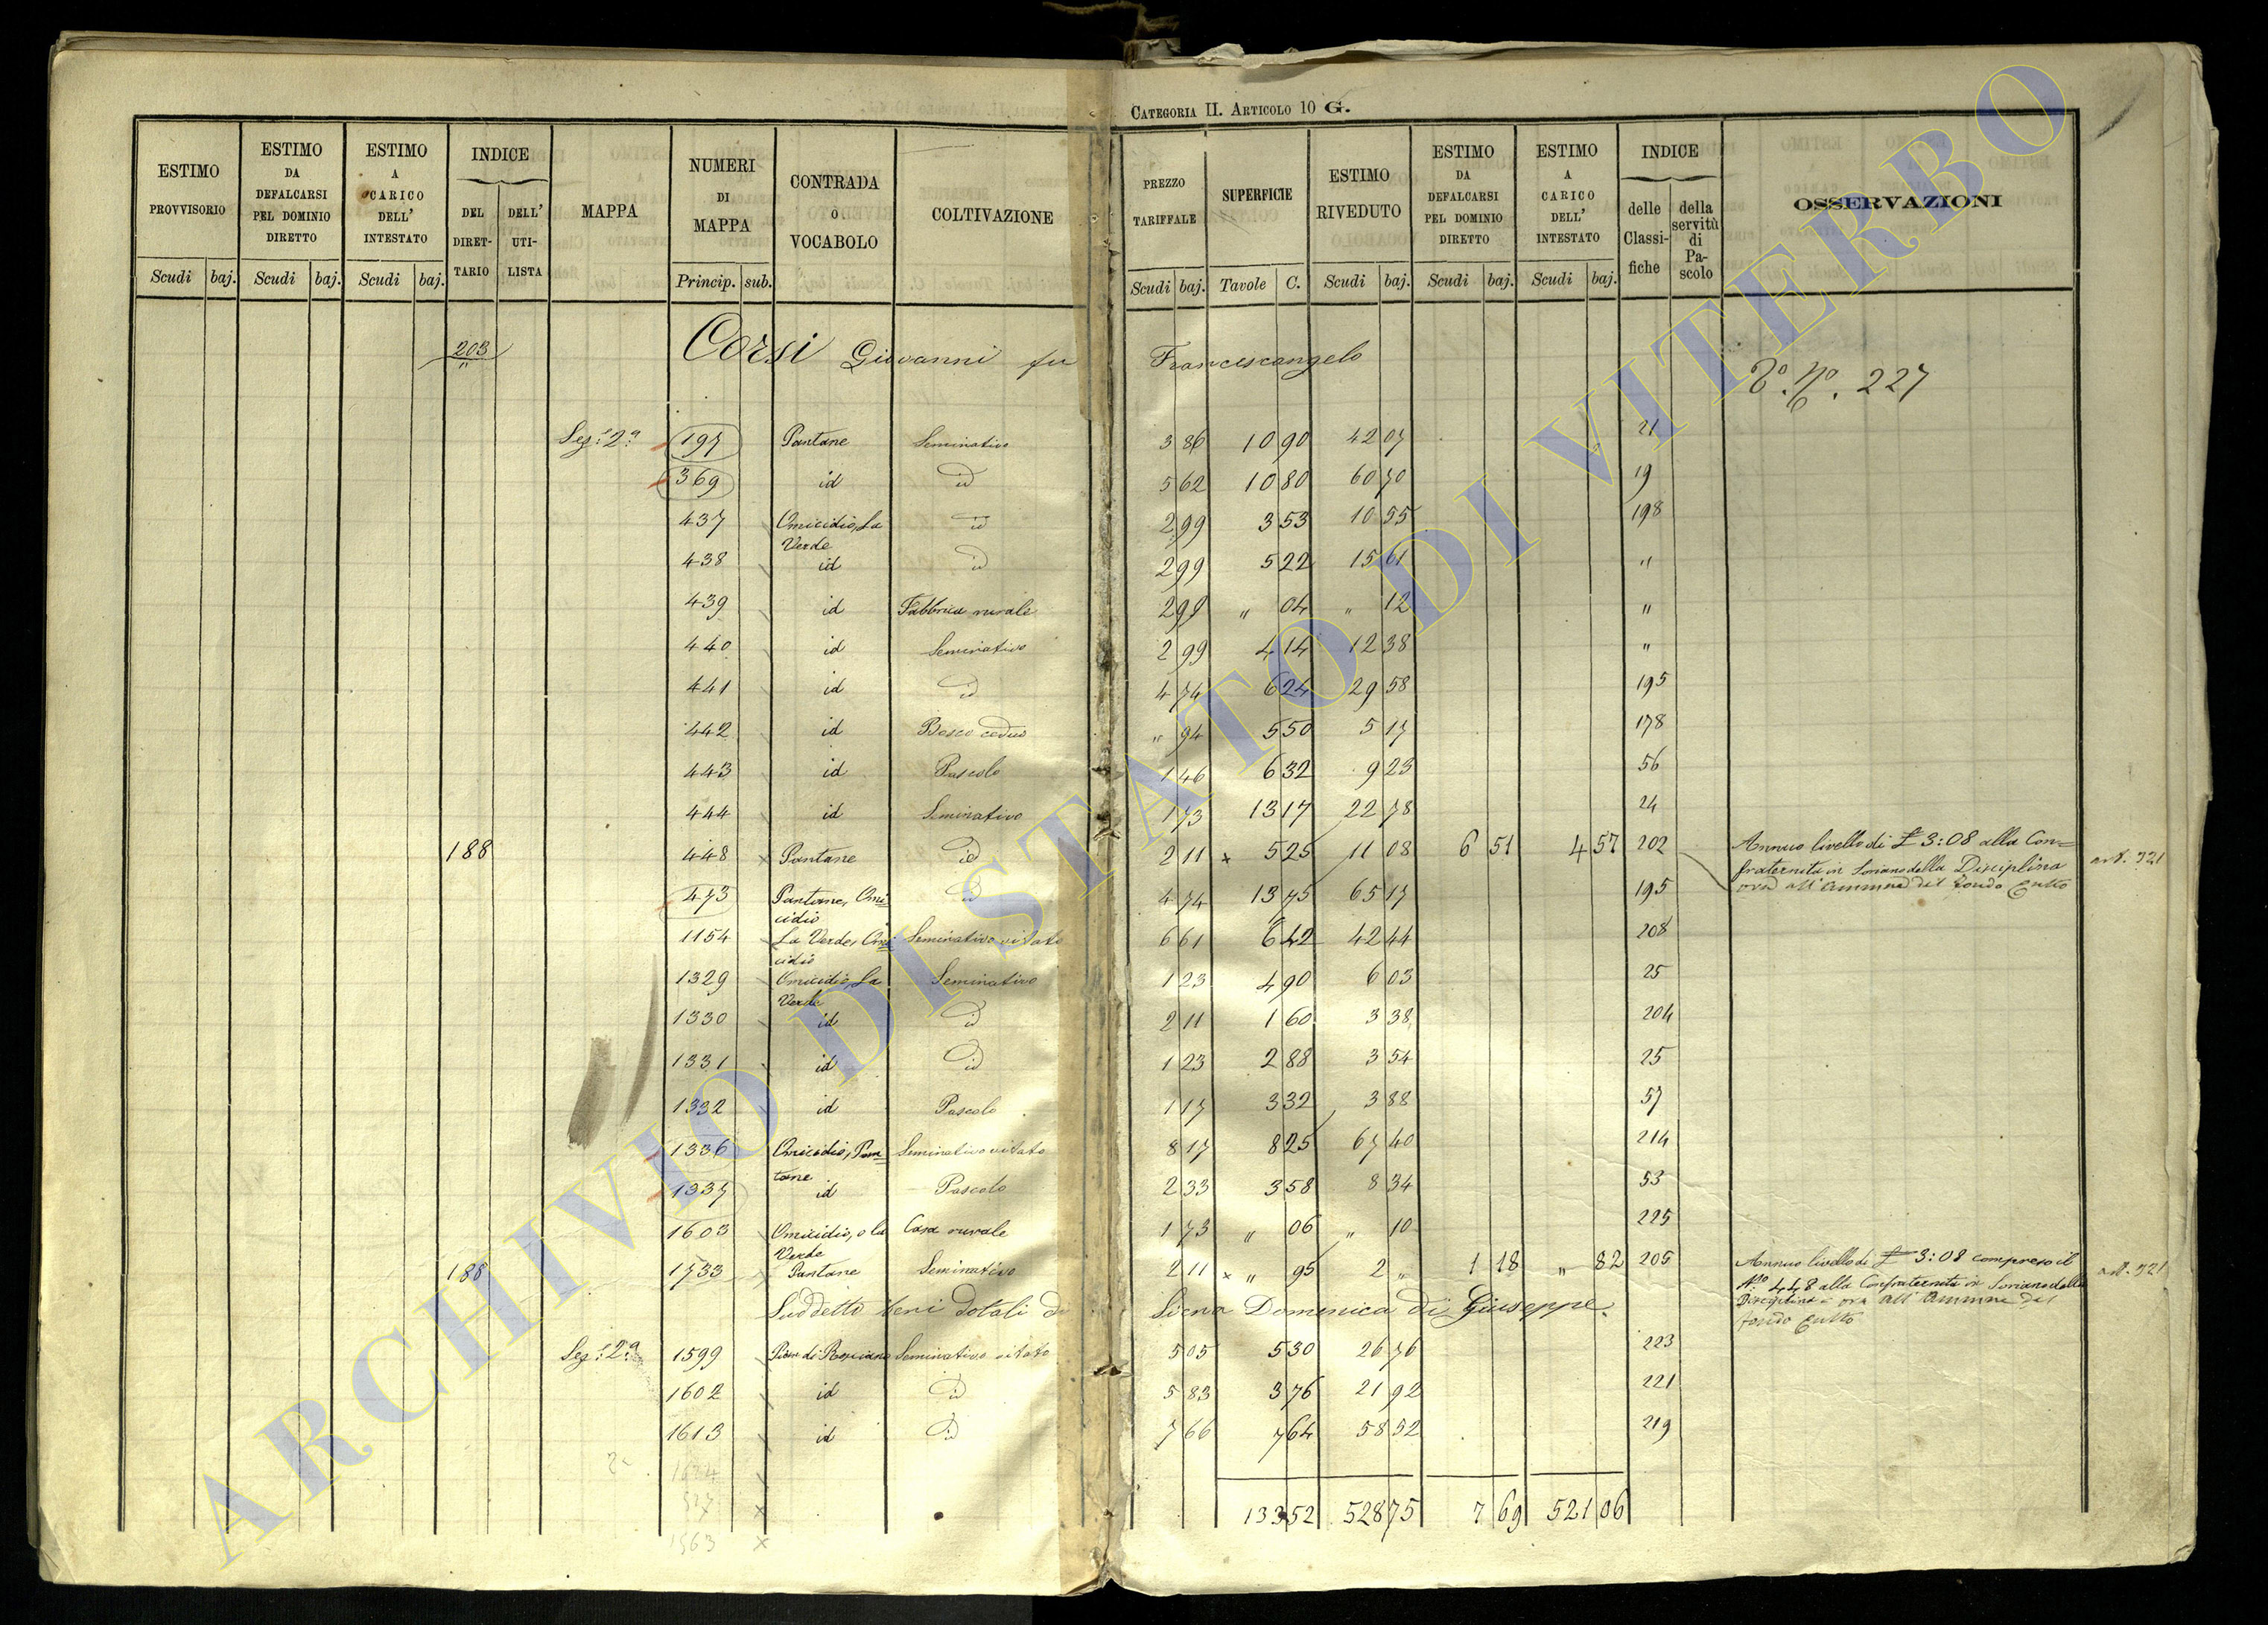 CATEGORIA II. ARTICOLO 10 G.
ESTIMO PROVVISORIO | ESTIMO DA DEFALCARSI PEL DOMINIO DIRETTO | ESTIMO A CARICO DELL' INTESTATO | INDICE DEL DIRETTARIO | DELL' UTILISTA | MAPPA | NUMERI DI MAPPA | CONTRADA O VOCABOLO | COLTIVAZIONE | PREZZO TARIFFALE | SUPERFICIE | ESTIMO RIVEDUTO | ESTIMO DA DEFALCARSI PEL DOMINIO DIRETTO | ESTIMO A CARICO DELL' INTESTATO | INDICE delle Classifiche | della servitù di Pascolo | OSSERVAZIONI
Scudi | baj. | Scudi | baj. | Scudi | baj. | Princip. | sub. | Scudi | baj. | Tavole | C. | Scudi | baj. | Scudi | baj. | Scudi | baj.
203 Corsi Giovanni fu Francescangelo
227
Sez.e 2a 197 Pantane Seminativo 3 86 10 90 42 07 21
369 id id 5 62 10 80 60 70 19
437 Omicidio, La Verde id 2 99 3 53 10 55 198
438 id id 2 99 5 22 15 61 "
439 id Fabbrica rurale 2 99 " 04 " 12 "
440 id Seminativo 2 99 4 14 12 38 "
441 id id 4 74 6 24 29 58 195
442 id Bosco ceduo " 94 5 50 5 17 178
443 id Pascolo 1 46 6 32 9 23 56
444 id Seminativo 1 73 13 17 22 78 24
188 448 x Pantane id 2 11 x 5 25 11 08 6 51 4 57 202 Annuo livello di £ 3:08 alla Confraternita in Soriano della Disciplina ora all'Ammne del fondo Culto art. 321
473 Pantane, Omicidio id 4 74 13 75 65 17 195
1154 La Verde, Omicidio Seminativo vitato 6 61 6 42 42 44 208
1329 Omicidio, La Verde Seminativo 1 23 4 90 6 03 25
1330 id id 2 11 1 60 3 38 204
1331 id id 1 23 2 88 3 54 25
1332 id Pascolo 1 17 3 32 3 88 57
1336 Omicidio, Pantane Seminativo vitato 8 17 8 25 67 40 214
1337 id Pascolo 2 33 3 58 8 34 53
1603 Omicidio, o la Verde Casa rurale 1 73 " 06 " 10 225
188 1733 x Pantane Seminativo 2 11 x " 95 2 " 1 18 " 82 205 Annuo livello di £ 3:08 compreso il No. 448 alla Confraternita in Soriano della Disciplina ora all'Ammne del fondo Culto art. 321
Suddetto beni dotali di Siena Domenica di Giuseppe.
Sez.e 2a 1599 Seminativo vitato 5 05 5 30 26 76 223
1602 id id 5 83 3 76 21 92 221
1613 id id 7 66 7 64 58 52 219
133 52 528 75 7 69 521 06
1563 x
ARCHIVIO DI STATO DI VITERBO